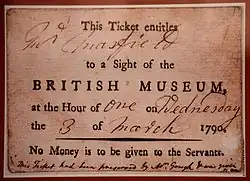 This Ticket entitles
to a Sight of the
BRITISH MUSEUM,
at the Hour of One on Wednesday
the 3 of March 1790.
No Money is to be given to the Servants.
This Ticket had been preserved by Mr. Gough